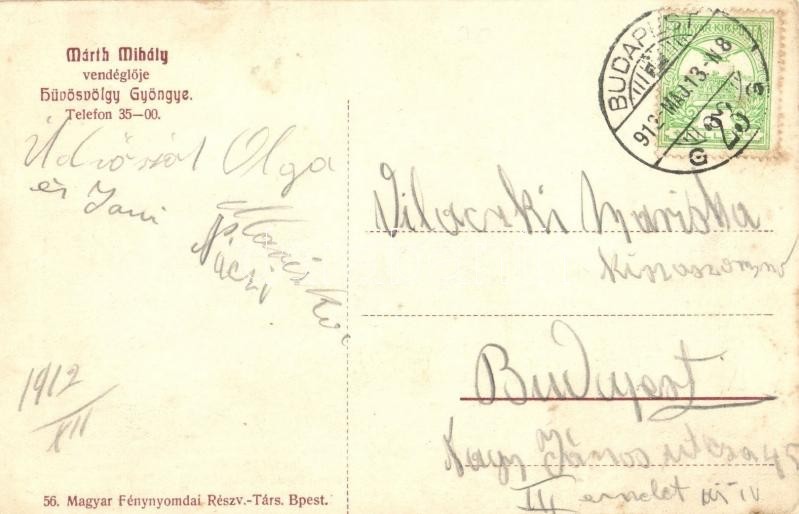 Márth Mihály
vendéglője
Hűvösvölgy Gyöngye.
Telefon 35—00.
Üdvözöl Olga
és Jani
Mariska
Náczi
1912
XII
56. Magyar Fénynyomdai Részv.-Társ. Bpest.
BUDAPEST
912 MÁJ 13
MAGYAR KIR. POSTA
Mariska
kisasszony
Budapest
Nagy János utcza 45
III emelet